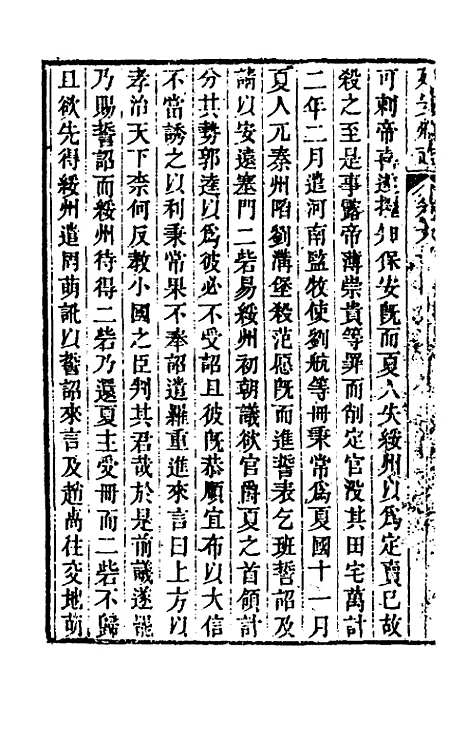 可刺帝喜遂擢知保安旣而夏人失綏州以爲定賣已故
殺之至是事露帝薄崇貴等罪而削定官沒其田宅萬計
二年二月遣河南監牧使劉航等冊秉常爲夏國十一月
夏人冗秦州陷劉溝堡殺范愿旣而進誓表乞班誓詔及
請以安遠塞門二砦易綏州初朝議欲官爵夏之首領計
分其勢郭逵以爲彼必不受詔且彼旣恭順宜布以大信
不當誘之以利秉常果不奉詔遣羅重進來言曰上方以
孝治天下柰何反敎小國之臣判其君哉於是前議遂罷
乃賜誓詔而綏州待得二砦乃還夏主受冊而二砦不歸
且欲先得綏州遣罔萌訛以誓詔來言及趙卨往交地萌